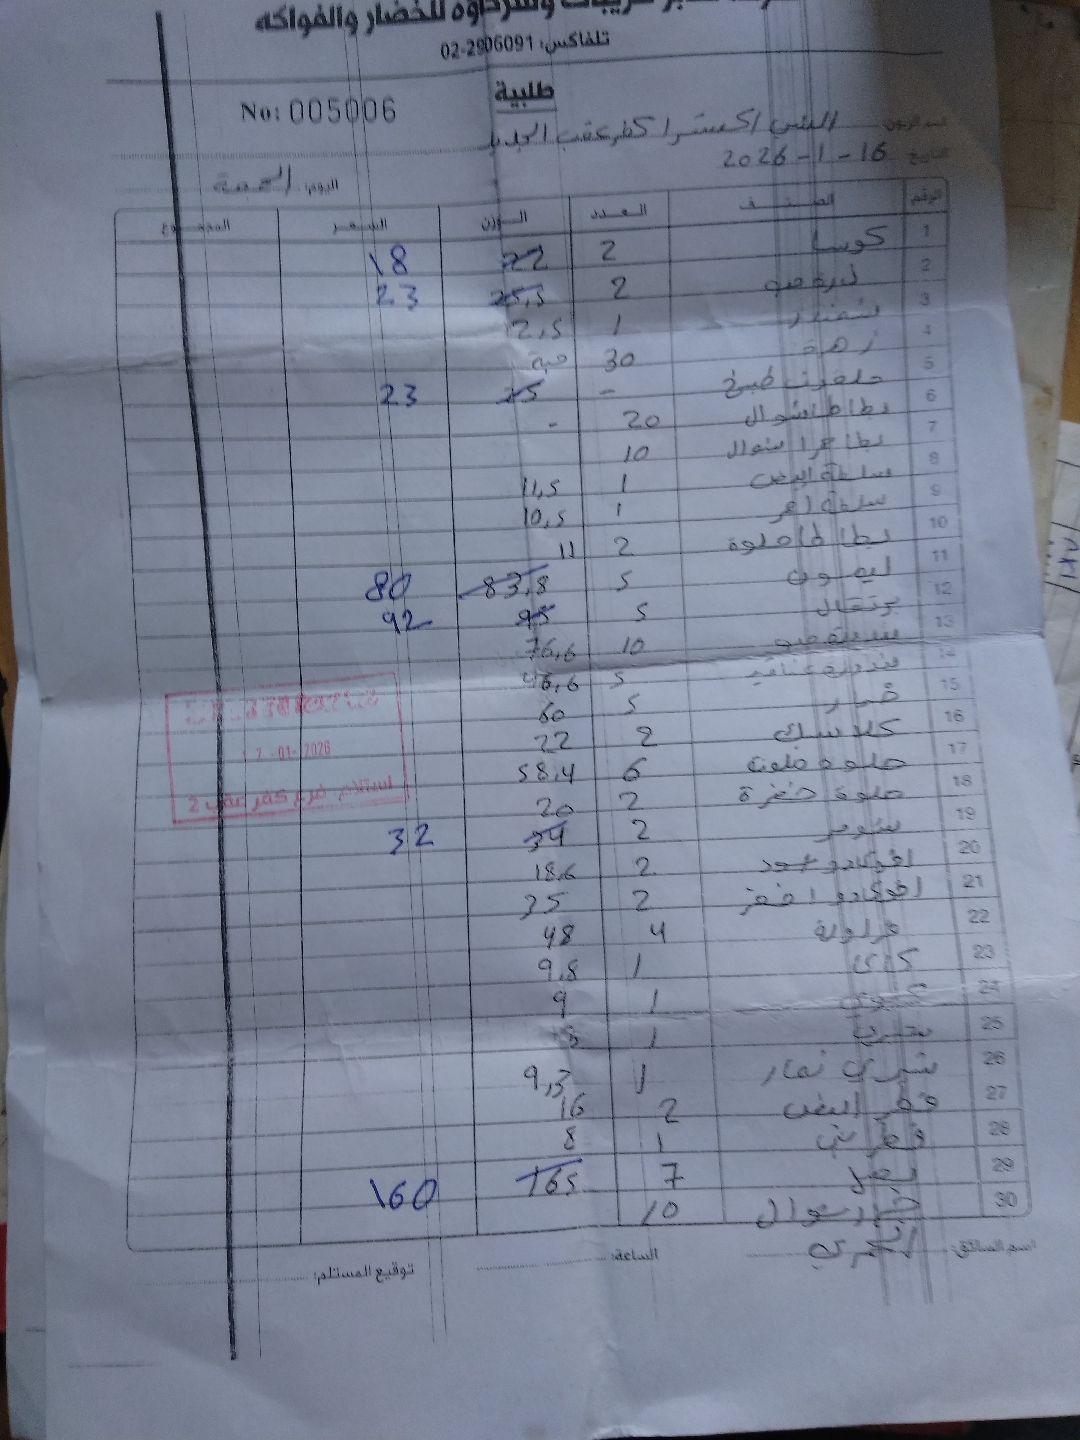 للخضار والفواكه
تلفاكس: 02-2906091
طلبية
No: 005006
اكسترا كفرعقب الجديد
التاريخ 16-1-2026
اليوم: الجمعة
الرقم الصنف العدد الوزن السعر المجموع
1 كوسا 2 22 18
2 2 25,5 23
3 شمندر 1 12,5
4 زهرة 30 حبة
5 ملفوف طبيخ - 25 23
6 بطاطا شوال 20 -
7 بطاطا شوال 10
8 1 11,5
9 1 10,5
10 بطاطا حلوة 2 11
11 ليمون 5 83,8 80
12 برتقال 5 95 92
13 10 76,6
14 5 46,6
15 5 60
16 2 22
17 حلوة ملون 6 58,4
18 حلوة خضرة 2 20
19 2 34 32
20 افوكادو 2 18,6
21 افوكادو اخضر 2 35
22 فراولة 4 48
23 كاكا 1 9,8
24 كيوي 1 9
25 1 8
26 1 9,3
27 فطر ابيض 2 16
28 فطر بني 1 8
29 بصل 7 165 160
30 شوال 10
اسم السائق:
الساعة:
توقيع المستلم:
2026 -01-
استلام فرع كفر عقب 2